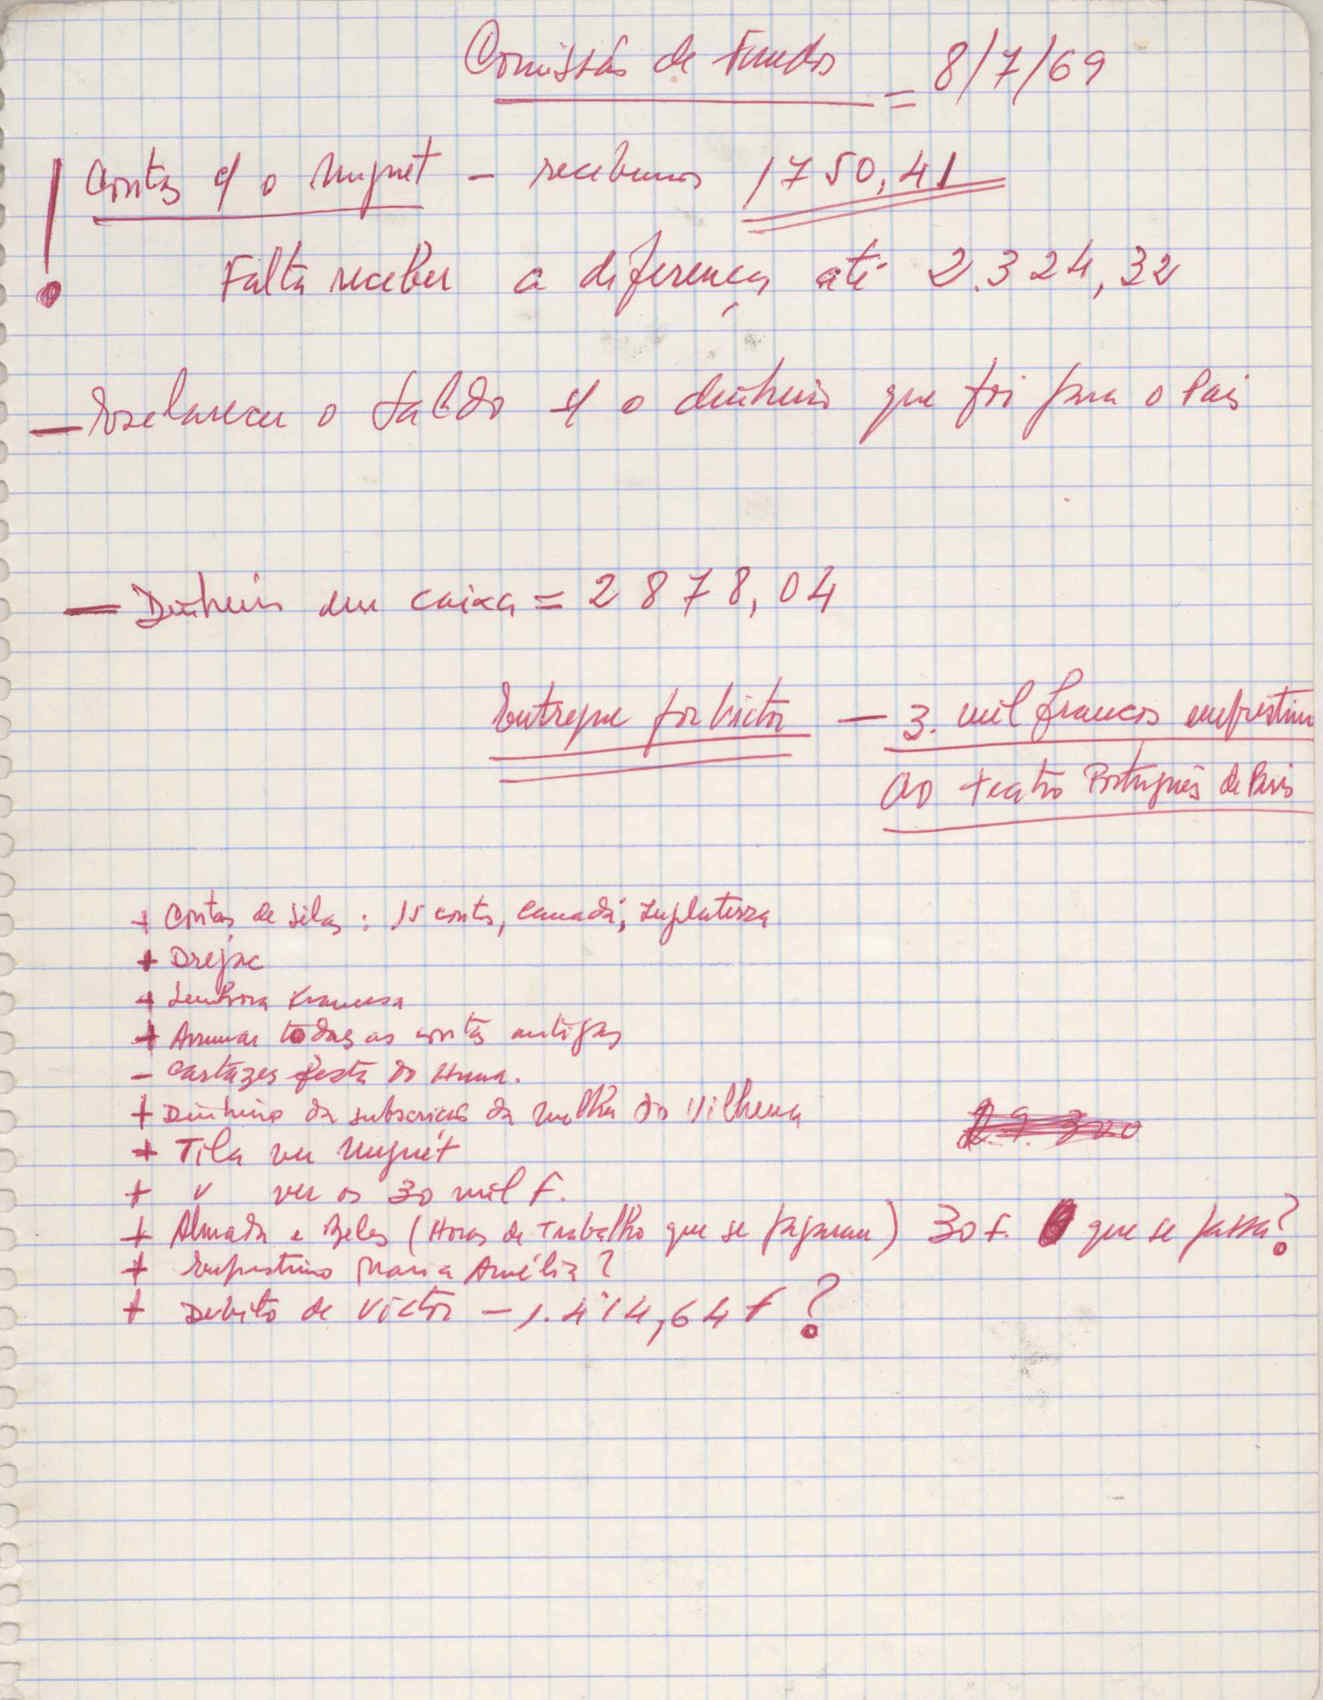 Comissão de Fundos = 8/7/69
! Contas c/ o Muguet – recebemos 1750,41
Falta receber a diferença até 2.324,32
— Esclarecer o saldo c/ o dinheiro que foi para o País
— Dinheiro em caixa = 2878,04
Entregue por Victor — 3. mil francos emprestimo
ao teatro Português de Paris
+ Contas de selos: 15 contos, Canadá, Inglaterra
+
+ Senhora Francesa
+ Arrumar todas as contas antigas
– Cartazes festa do Huma.
+ Dinheiro da subscrição da mulher do Vilhena
+ Tila ver Muguet
+ " ver os 30 mil F.
+ Almada e Beles (Horas de Trabalho que se pagaram) 30 F. O que se passa?
+ Emprestimo Maria Amélia?
+ Debito de Victor – 1.414,64 F ?